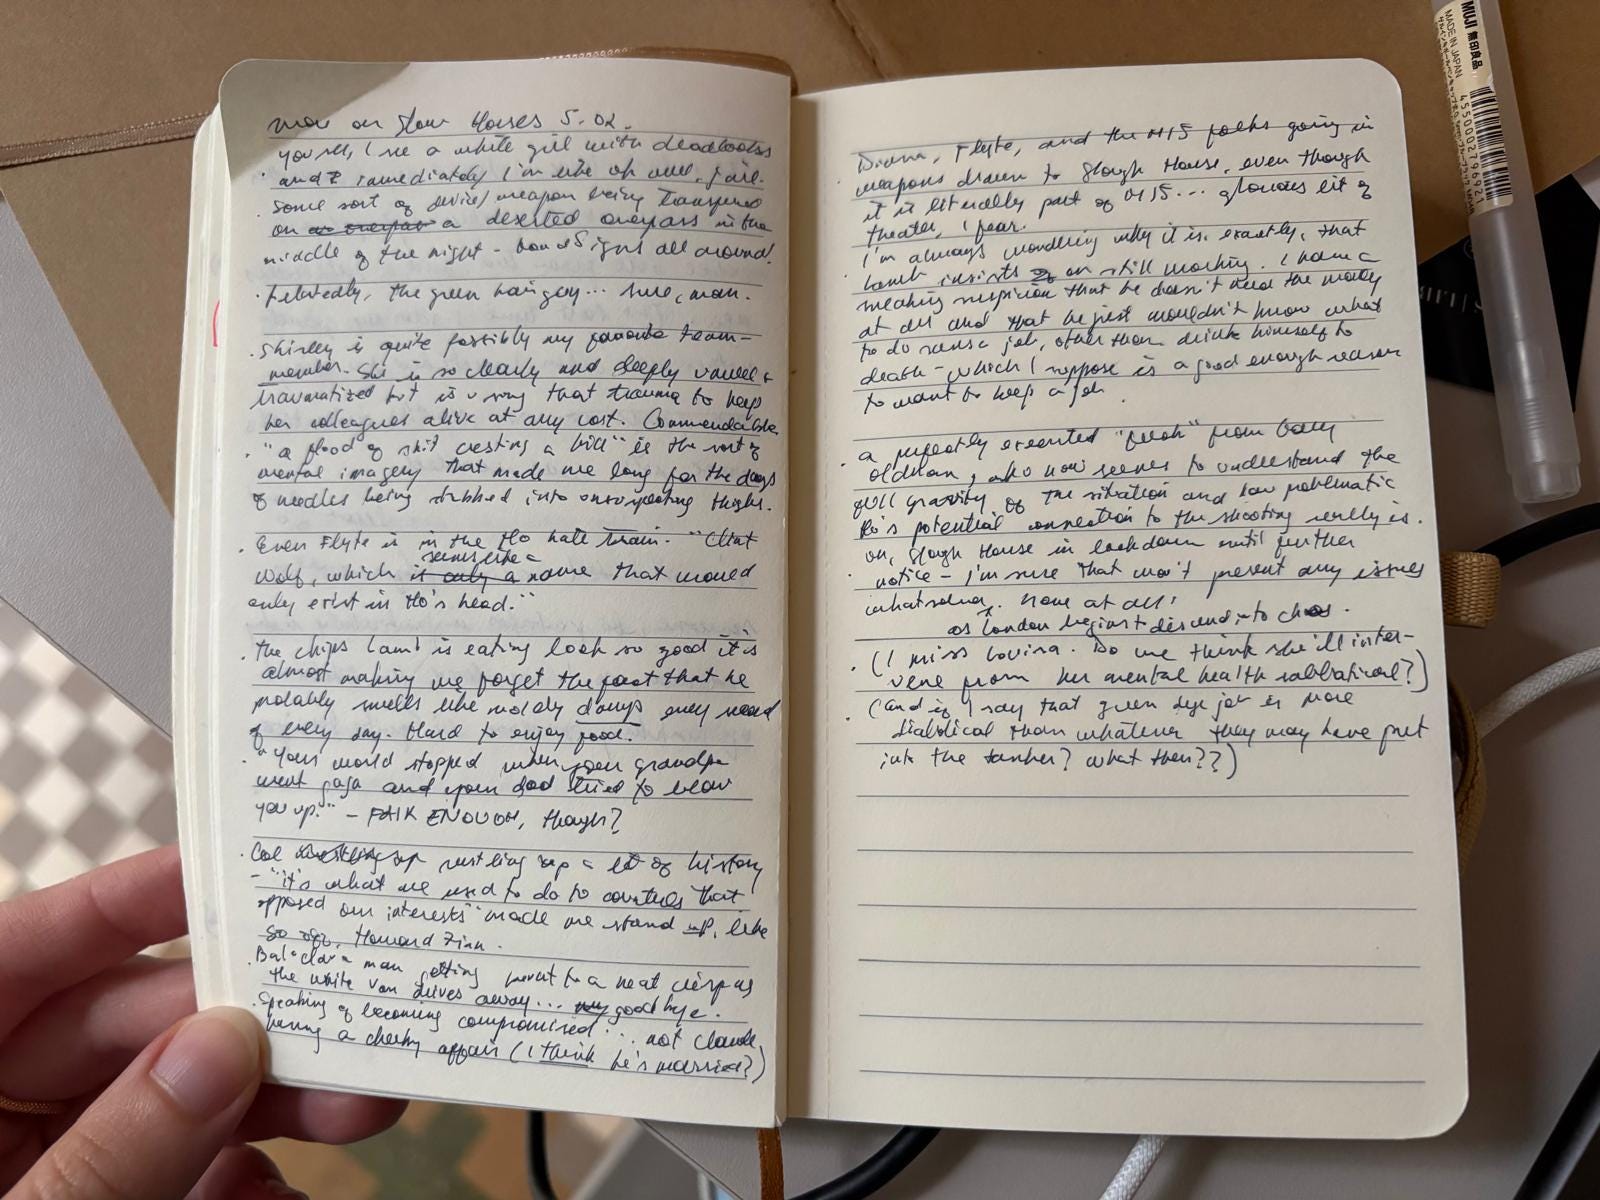 more on Slow Horses 5.02.
you see, I see a white girl with deadlocks
and I immediately I'm like oh well, jail.
· Some sort of device/weapon being transferred
on an overpass a deserted overpass in the
middle of the night – bad signs all around!
· Relatedly, the green hair guy... sure, man.
· Shirley is quite possibly my favorite team-
member. She is so clearly and deeply unwell +
traumatized but is using that trauma to keep
her colleagues alive at any cost. Commendable.
· "a flood of shit cresting a hill" is the sort of
mental imagery that made me long for the days
of needles being stabbed into unsuspecting thighs.
· Even Flyte is in the Ho hate train. "Clint
seems like a
Wolf, which it only a name that would
only exist in Ho's head."
· The chips Lamb is eating look so good it is
almost making me forget the fact that he
notably smells like moldy dumps every second
of every day. Hard to enjoy food.
· "Your world stopped when your grandpa
went gaga and your dad tried to blow
you up." – FAIR ENOUGH, though?
· Coe rustling up a lot of history
– "it's what we used to do to countries that
opposed our interests" made me stand up, like
so off, Howard Zinn.
· Balaclava man getting burnt to a neat crisp as
the white van drives away... my good bye.
· Speaking of becoming compromised... not Claude
having a cheeky affair (I think he's married?)
· Diana, Flyte, and the MI5 folks going in
weapons drawn to Slough House, even though
it is literally part of MI5... glorious bit of
theater, I fear.
· I'm always wondering why it is, exactly, that
Lamb insists on still working. I have a
sneaking suspicion that he doesn't need the money
at all and that he just wouldn't know what
to do sans a job, other than drink himself to
death – which I suppose is a good enough reason
to want to keep a job.
· a perfectly executed from Gary
Oldman, who now seems to understand the
full gravity of the situation and how problematic
Ho's potential connection to the shooting really is.
· oh, Slough House in lockdown until further
notice – I'm sure that won't prevent any issues
whatsoever. None at all!
as London begins to descend into chaos.
· (I miss Lovina. Do we think she'll inter-
vene from her mental health sabbatical?)
· (and if I say that green dye job is more
diabolical than whatever they may have put
into the tanker? what then??)
MUJI 無印良品
MADE IN JAPAN
4550002796921